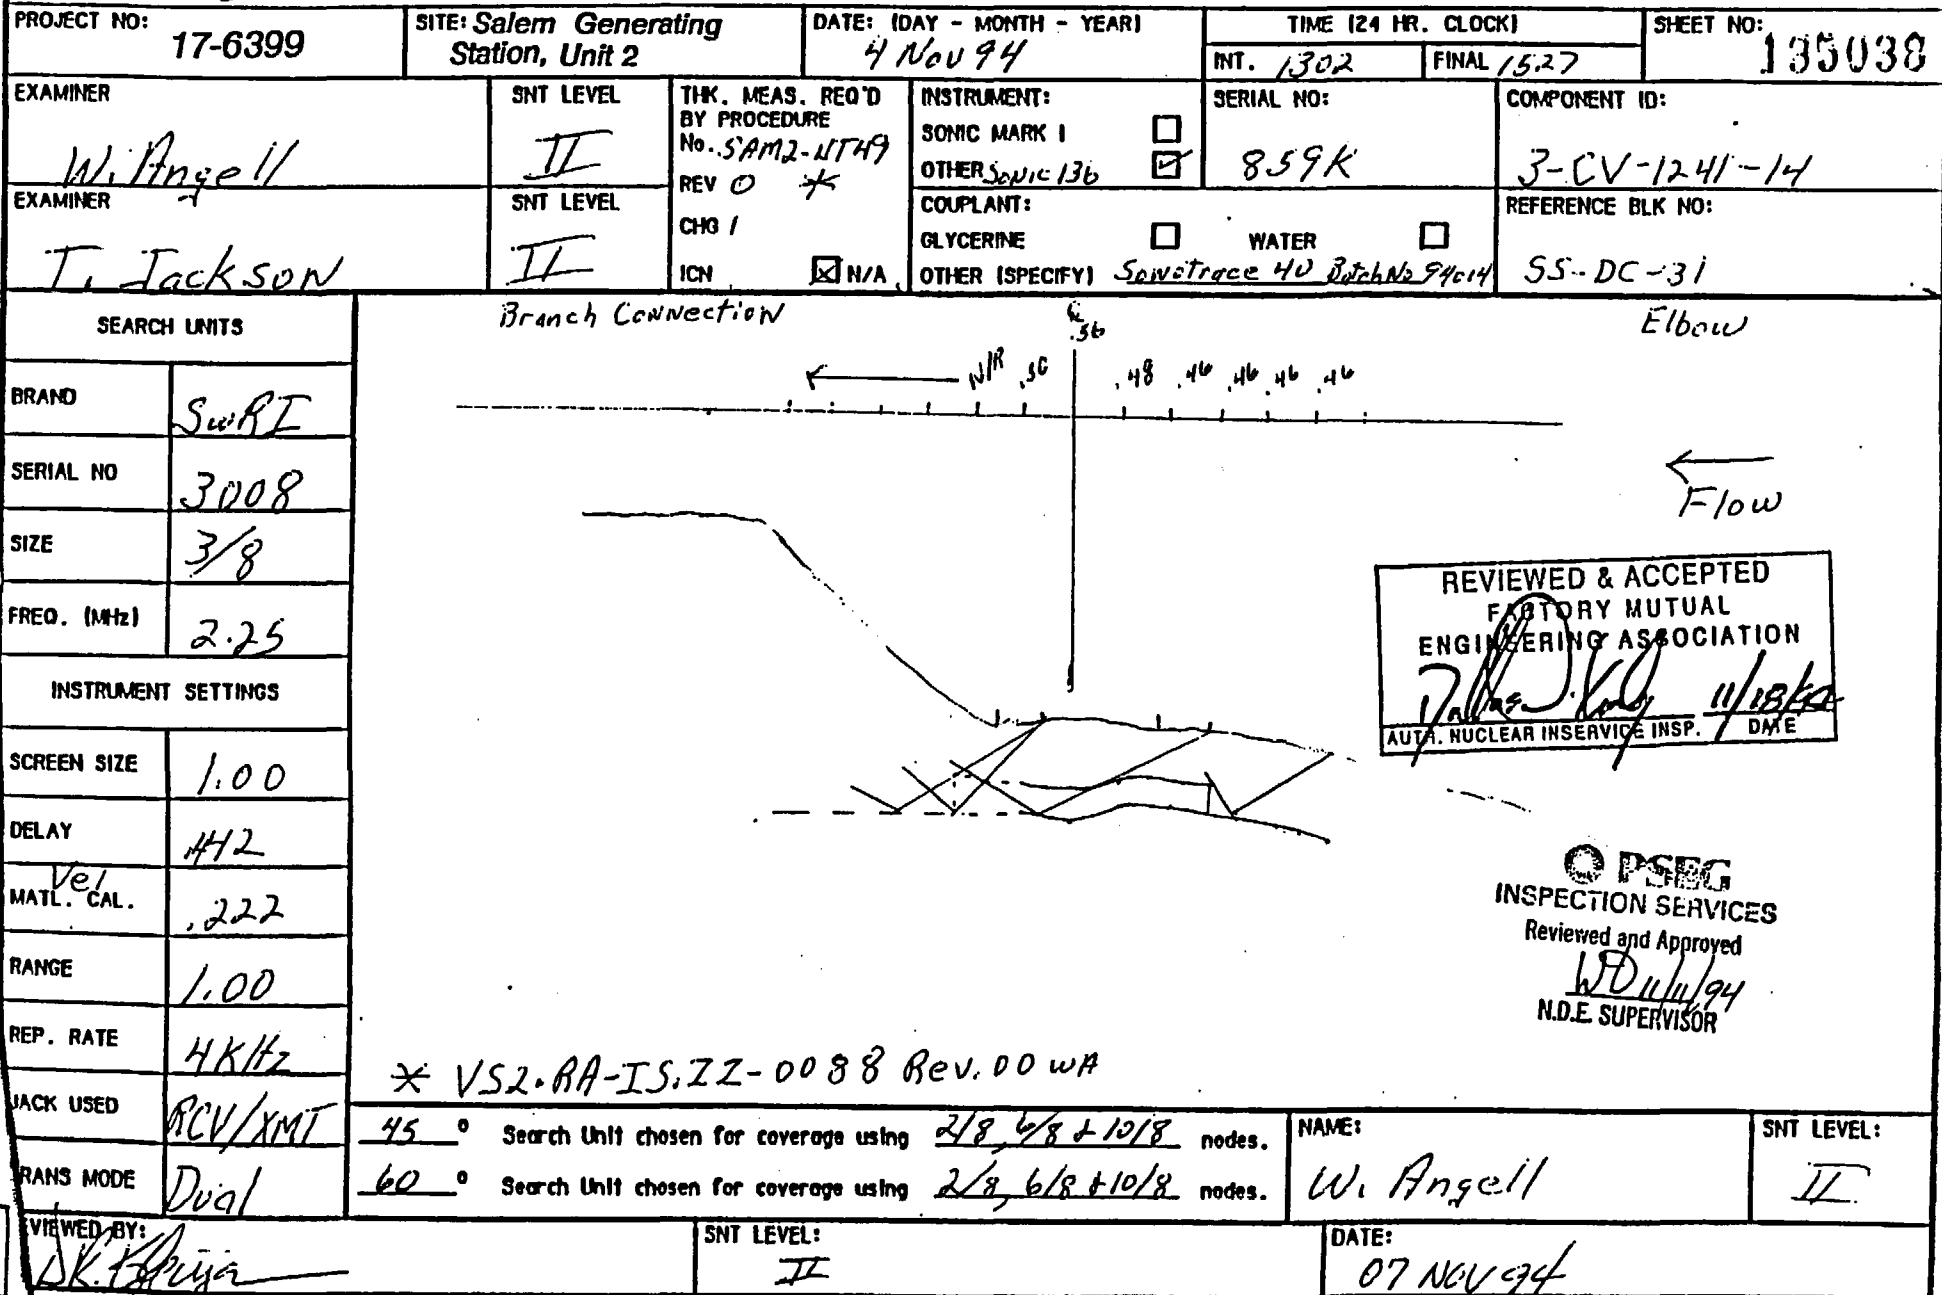 PROJECT NO: 17-6399
SITE: Salem Generating Station, Unit 2
DATE: (DAY - MONTH - YEAR) 4 Nov 94
TIME (24 HR. CLOCK)
INT. 1302 FINAL 1527
SHEET NO: 135038
EXAMINER W. Angell
SNT LEVEL II
THK. MEAS. REQ'D
BY PROCEDURE
No. SAM2-UT49
REV 0 *
CHG 1
ICN ☒ N/A
INSTRUMENT:
SONIC MARK I ☐
OTHER Sonic 136 ☑
SERIAL NO: 859K
COMPONENT ID: 3-CV-1241-14
EXAMINER T. Jackson
SNT LEVEL II
COUPLANT:
GLYCERINE ☐ WATER ☐
OTHER (SPECIFY) Sonotrace 40 Batch No 94014
REFERENCE BLK NO: SS-DC-31
SEARCH UNITS
BRAND SwRI
SERIAL NO 3008
SIZE 3/8
FREQ. (MHz) 2.25
INSTRUMENT SETTINGS
SCREEN SIZE 1.00
DELAY .442
Vel
MATL. CAL. .222
RANGE 1.00
REP. RATE 4KHz
JACK USED RCV/XMT
TRANS MODE Dual
Branch Connection
℄
.56
Elbow
N/R .50 .48 .46 .46 .46 .46
Flow
REVIEWED & ACCEPTED
FACTORY MUTUAL
ENGINEERING ASSOCIATION
11/18/94
AUTH. NUCLEAR INSERVICE INSP. DATE
PSEG
INSPECTION SERVICES
Reviewed and Approved
WD 11/11/94
N.D.E. SUPERVISOR
* VS2.RA-IS.ZZ-0088 Rev.00 WA
45 ° Search Unit chosen for coverage using 2/8, 6/8 & 10/8 nodes.
60 ° Search Unit chosen for coverage using 2/8, 6/8 & 10/8 nodes.
NAME: W. Angell
SNT LEVEL: II
EVIEWED BY:
SNT LEVEL: II
DATE: 07 NOV 94